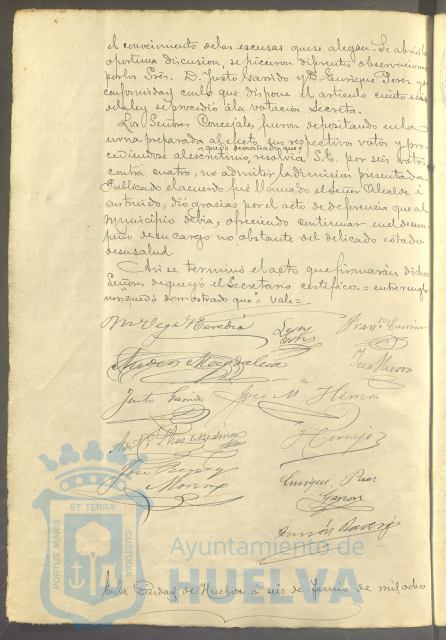 el conocimiento de las escusas que se alegan. Se abrió la
oportuna discusion, se hicieron diferentes observaciones
por los Sres. D. Justo Garrido y D. Enrique Perez y de
conformidad con lo que dispone el articulo ciento seis
de la ley se procedió á la votación Secreta.
Los Señores Concejales fueron depositando en la
urna preparada al efecto, sus respectivos votos y pro-
quedó demostrado que
cediendose al escrutinio, resolvia S.E. por seis votos
contra cuatro, no admitir la dimision presentada.
Publicado el acuerdo fué llamado el Señor Alcalde é
instruido, dió gracias por el acto de deferencia que al
Municipio debia, ofreciendo continuar en el desem-
peño de su cargo no obstante del delicado estado
de su salud.
Asi se terminó el acto que firmarán dichos
Señores de que yó el Secretario certifico. = entrerenglo-
nes "quedó demostrado que" vale =
Vega Heredia
Franco Carrion
Justo Garrido
José Mª Herrera
Enrique Perez
En la Ciudad de Huelva á seis de Junio de mil ocho
ET TERRÆ
PORTUS MARIS
CUSTODIA
Ayuntamiento de
HUELVA